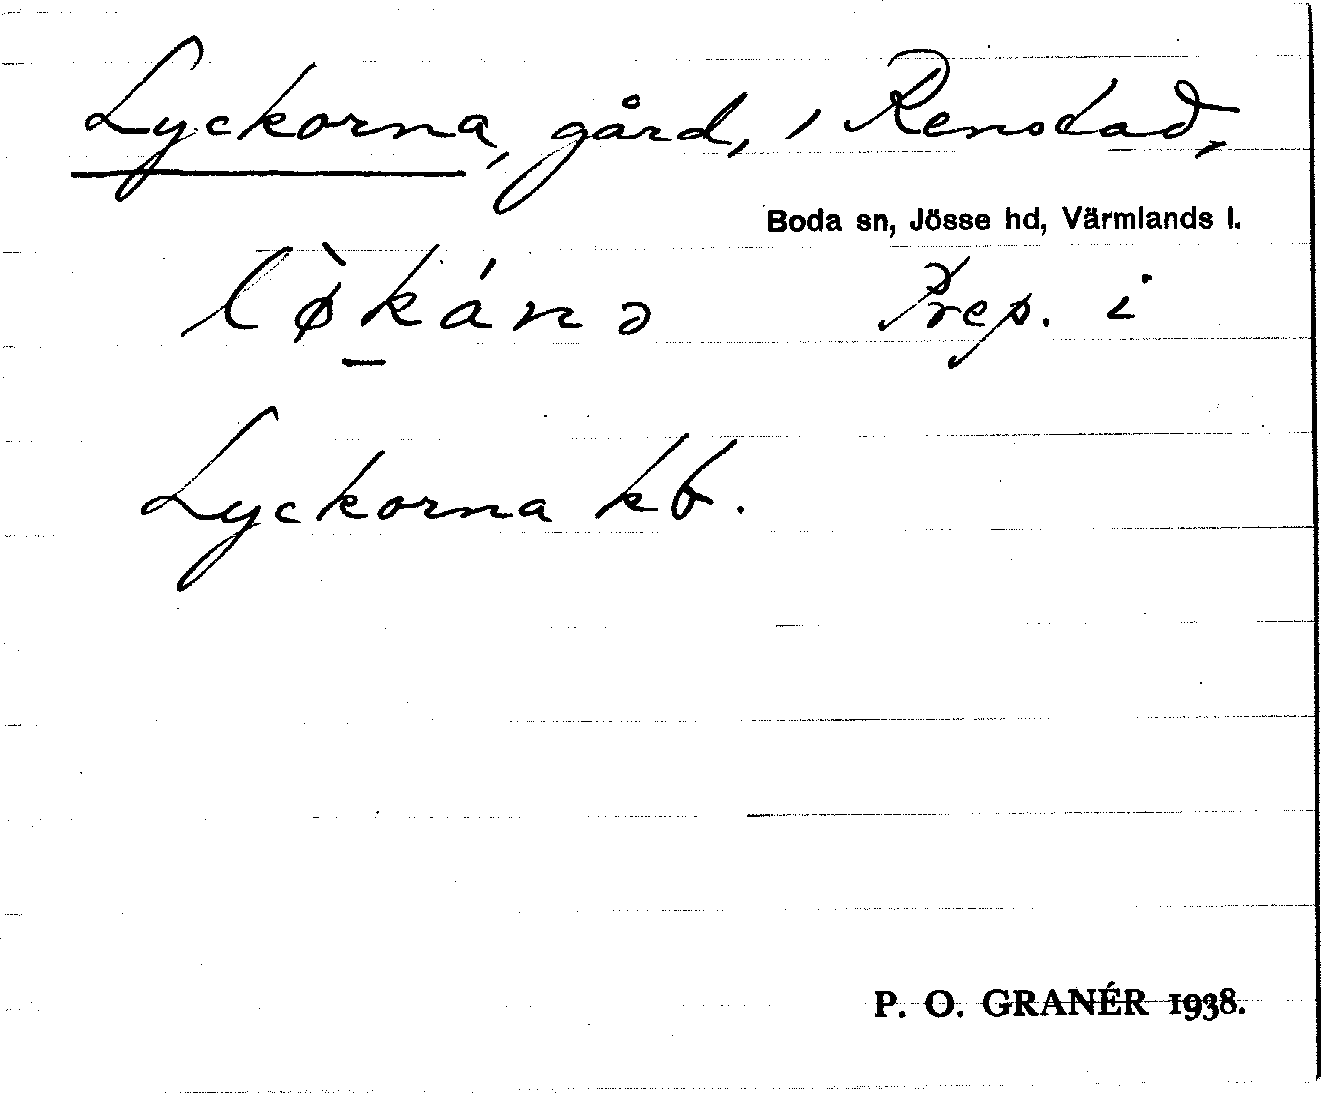 Lyckorna, gård, i Renstad,
Boda sn, Jösse hd, Värmlands l.
lø̀ḵánə Prep. i
Lyckorna kb.
P. O. GRANÉR 1938.